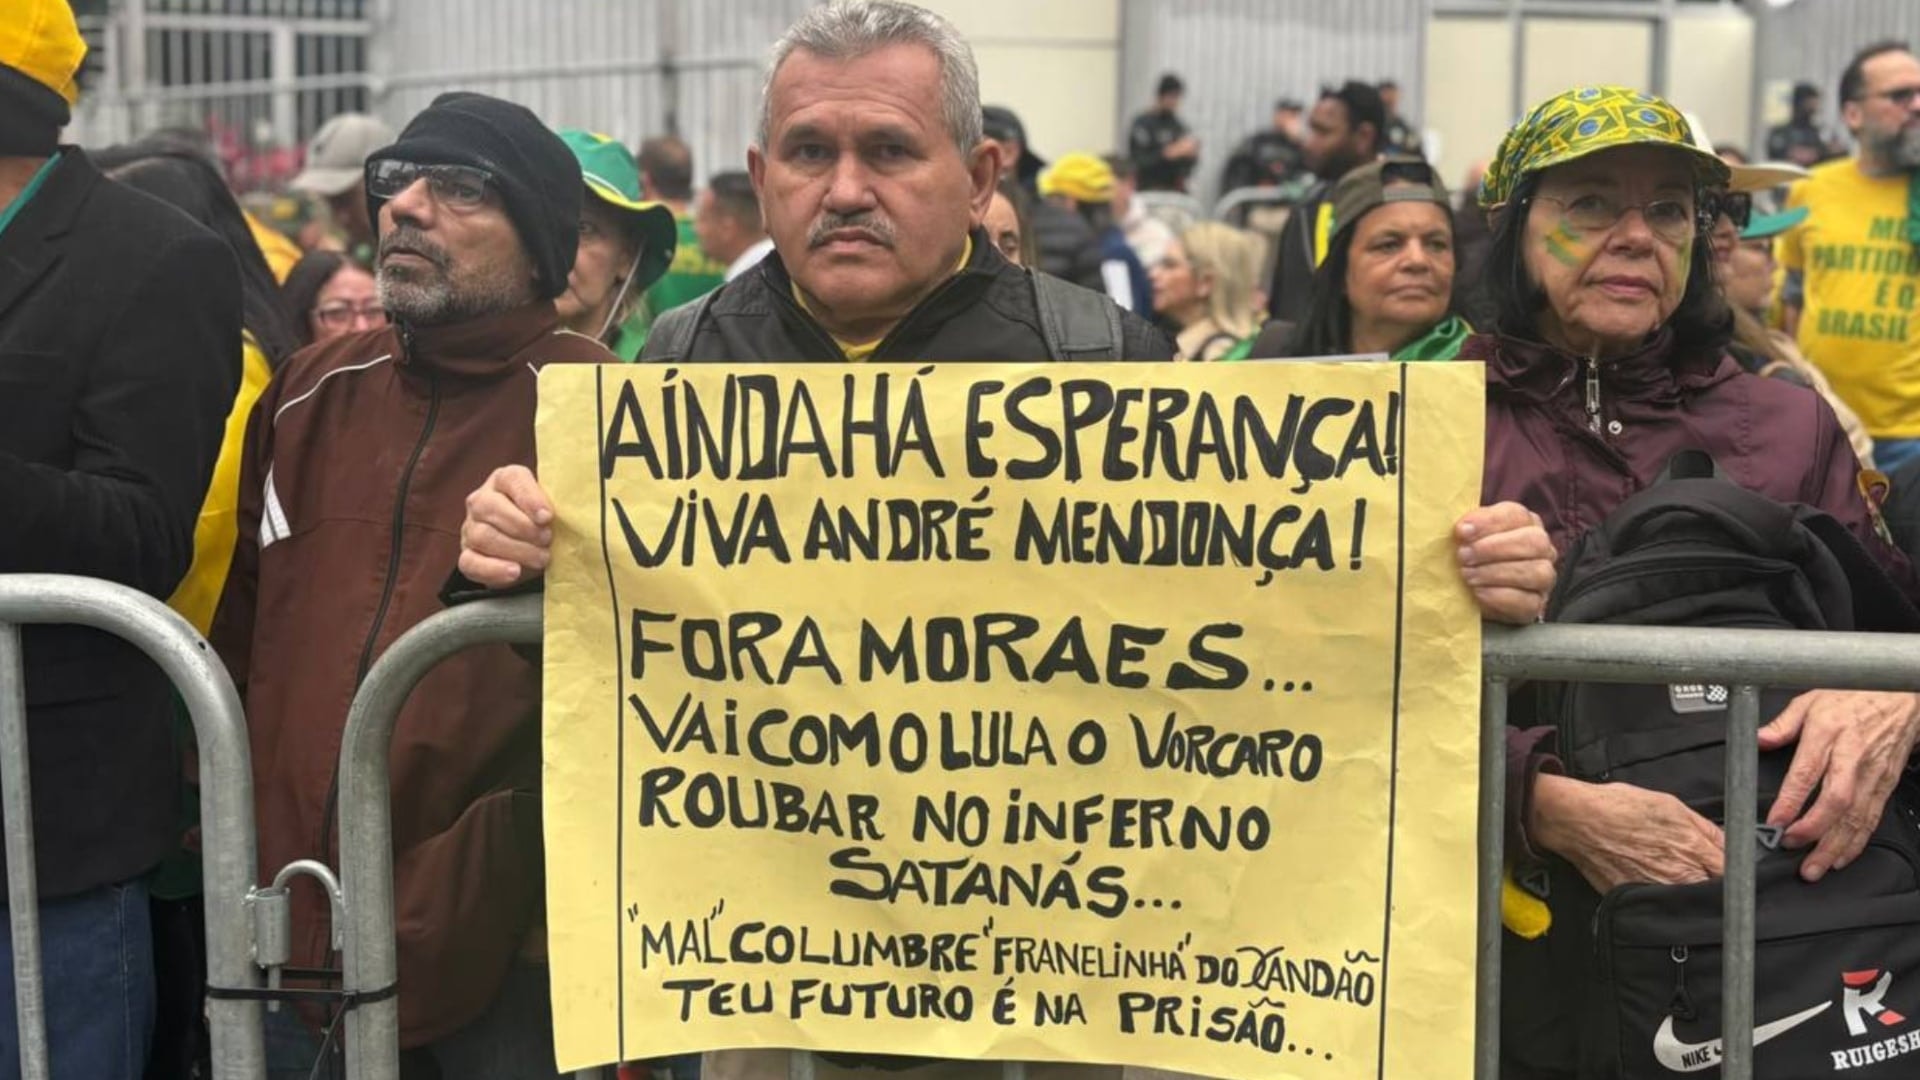 AÍNDA HÁ ESPERANÇA!
VIVA ANDRÉ MENDONÇA!
FORA MORAES...
VAI COM O LULA O VORCARO
ROUBAR NO INFERNO
SATANÁS...
"MAL" COLUMBRE "FRANELINHA" DO XANDÃO
TEU FUTURO É NA PRISÃO...
PARTIDO
É O
BRASIL
NIKE
RUIGESH